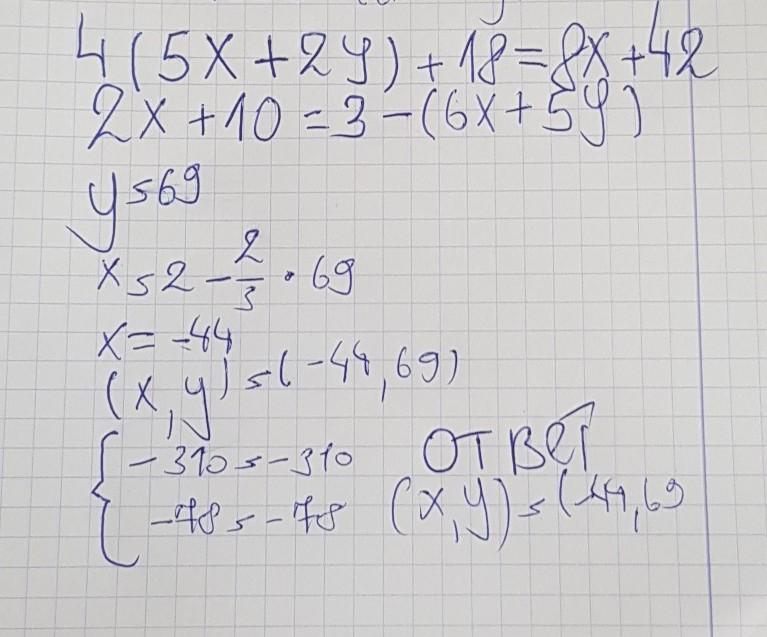 4(5x+2y)+18=8x+42
2x+10=3-(6x+5y)
y=69
x=2-2/3·69
x=-44
(x,y)=(-44,69)
{-310=-310
-78=-78
ОТВЕТ
(x,y)=(-44,69